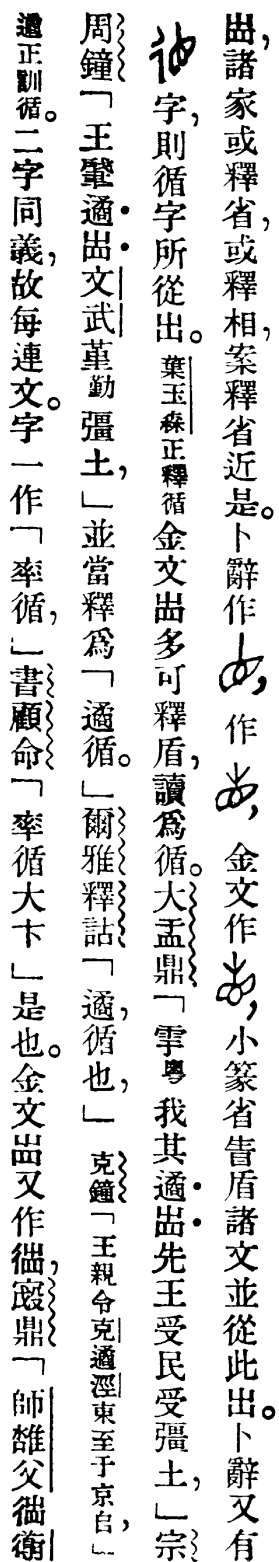 諸家或釋省,或釋相,案釋省近是。卜辭作,作,金文作,小篆省眚盾諸文並從此出。卜辭又有
字,則循字所從出。葉玉森正釋循金文多可釋盾,讀爲循。大盂鼎「雩粤我其遹先王受民受彊土,」宗
周鐘「王肈遹文武堇勤彊土,」並當釋爲「遹循。」爾雅釋詁「遹,循也,」克鐘「王親令克遹涇東至于京𠂤,」
遹正訓循。二字同義,故每連文。字一作「率循,」書顧命「率循大卞」是也。金文又作,鼎「師雝父